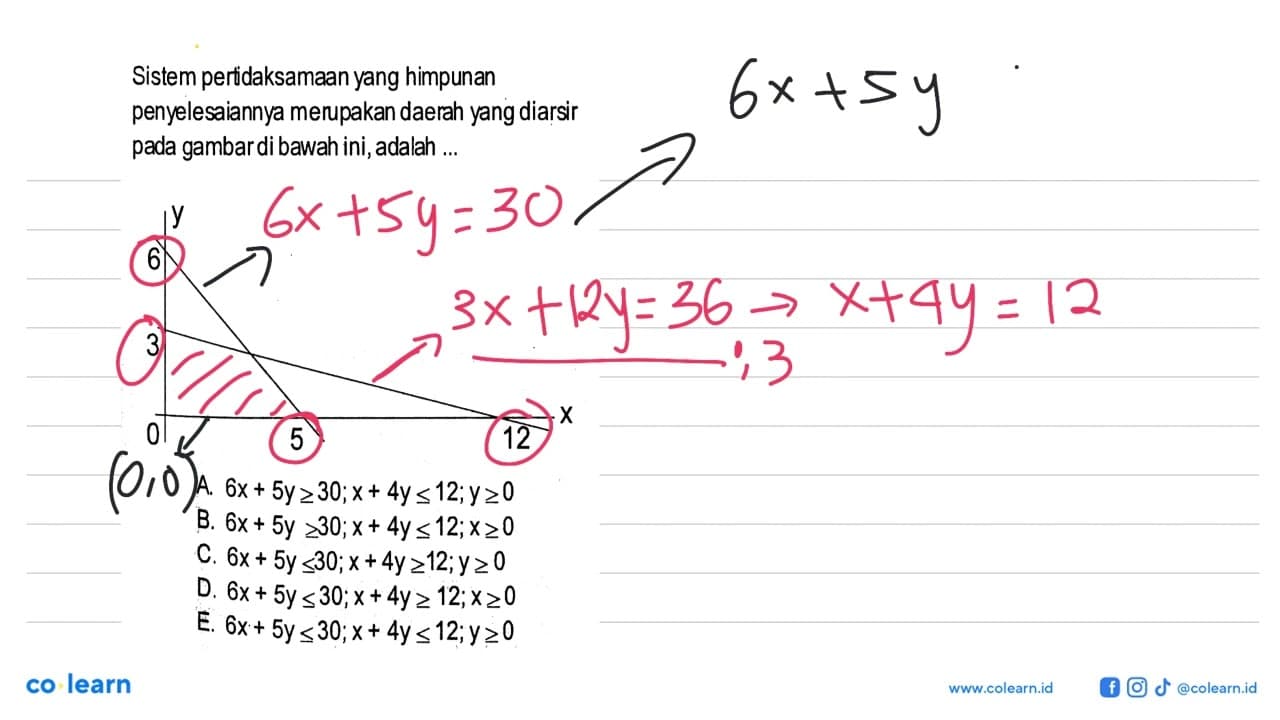 Sistem pertidaksamaan yang himpunan
penyelesaiannya merupakan daerah yang diarsir
pada gambar di bawah ini, adalah ...
6x + 5y
y
6x + 5y = 30
6
3x + 12y = 36 → x + 4y = 12
: 3
3
x
0
5
12
(0,0)
A. 6x + 5y ≥ 30; x + 4y ≤ 12; y ≥ 0
B. 6x + 5y ≥30; x + 4y ≤ 12; x ≥ 0
C. 6x + 5y ≤30; x + 4y ≥12; y ≥ 0
D. 6x + 5y ≤ 30; x + 4y ≥ 12; x ≥ 0
E. 6x + 5y ≤ 30; x + 4y ≤ 12; y ≥ 0
co learn
www.colearn.id
@colearn.id